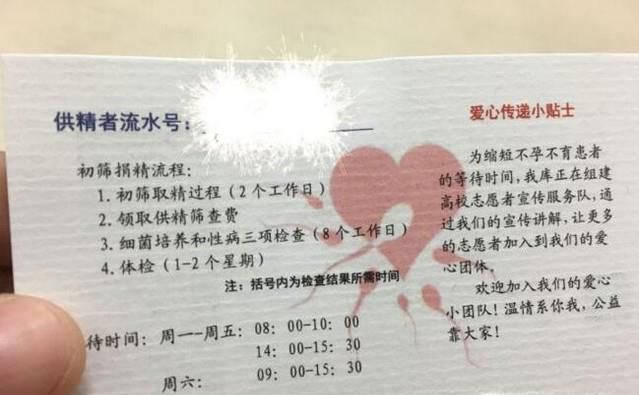 供精者流水号：
初筛捐精流程：
1. 初筛取精过程（2个工作日）
2. 领取供精筛查费
3. 细菌培养和性病三项检查（8个工作日）
4. 体检（1-2个星期）
注：括号内为检查结果所需时间
待时间：周一一周五：08：00-10：00
14：00-15：30
周六：09：00-15：30
爱心传递小贴士
为缩短不孕不育患者
的等待时间，我库正在组建
高校志愿者宣传服务队，通
过我们的宣传讲解，让更多
的志愿者加入到我们的爱
心团体。
欢迎加入我们的爱心
小团队！温情系你我，公益
靠大家！